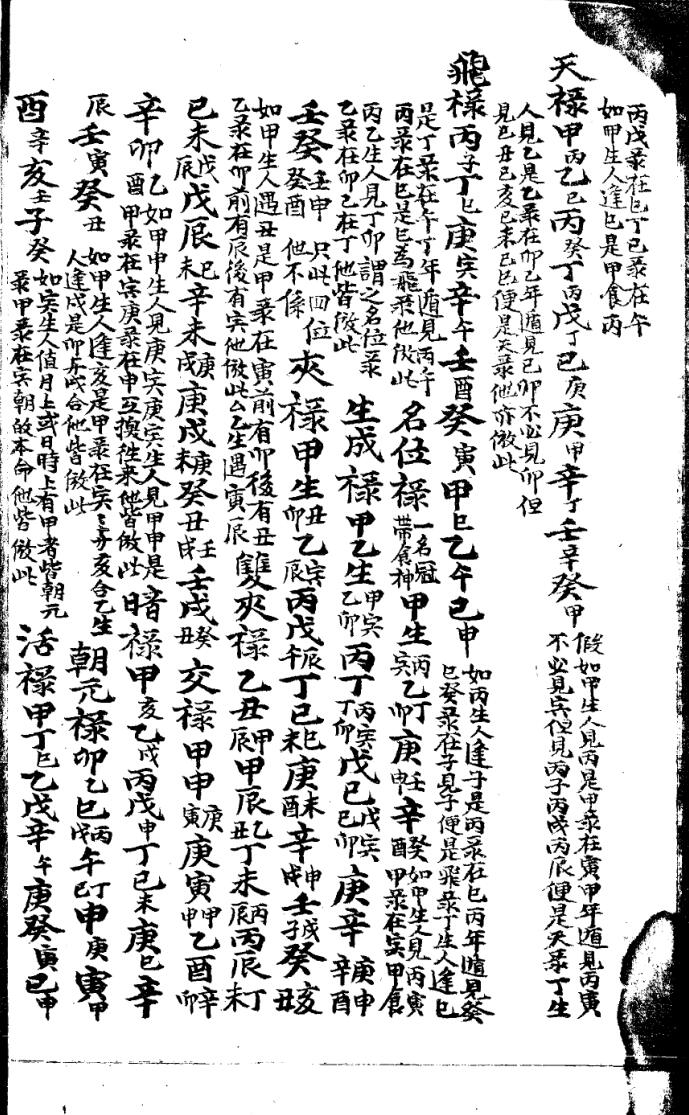 丙戊彔在巳丁己彔在午
如甲生人逢巳是甲食丙
天禄甲丙乙己丙癸丁丙戊丁己庚庚甲辛丁壬辛癸甲
假如甲生人見丙是甲彔在寅甲年遁見丙寅
不必見寅但見丙子丙戌丙辰便是天彔丁生
人見乙是乙彔在卯乙年遁見己卯不必見卯但
見己丑己亥己未己巳便是天彔他亦倣此
飛禄丙子丁巳庚寅辛午壬酉癸寅甲巳乙午己申
如丙生人逢子是丙彔在巳丙年遁見癸
巳癸彔在子見子便是飛彔丁生人逢巳
是丁彔在午丁年遁見丙午
丙彔在巳是巳爲飛彔他倣此
名位禄
一名冠
帶食神
甲生丙寅乙丁卯庚壬申辛癸酉
如甲生人見丙寅
甲彔在寅甲食
丙乙生人見丁卯謂之名位彔
乙彔在卯乙在丁他皆倣此
生成禄甲乙生甲寅乙卯丙丁丙寅丁卯戊己戊寅己卯庚辛庚申辛酉
壬癸壬申癸酉
只此四位
他不係
夾禄甲生丑卯乙寅辰丙戊辰午丁己巳未庚未酉辛申戌壬戌子癸亥丑
如甲生人遇丑是甲彔在寅前有卯後有丑
乙彔在卯前有辰後有寅他倣此乙生遇寅辰
雙夾禄乙丑甲辰甲辰乙丑丁未丙辰丙辰丁未
己未戊辰戊辰己未辛未庚戌庚戌未癸丑壬戌壬戌癸丑交禄甲申庚寅庚寅甲申乙酉辛卯
辛卯乙酉
如甲申生人見庚寅庚寅生人見甲申是
甲彔在寅庚彔在申互換往來他皆倣此
暗禄甲亥乙戌丙戊申丁己未庚巳辛
辰壬寅癸丑
如甲生人逢亥是甲彔在寅〻与亥合乙生
人逢戌是卯与戌合他皆倣此
朝元禄卯乙巳丙戊午丁己申庚寅甲
酉辛亥壬子癸
如寅生人值月上或日時上有甲者皆朝元
彔甲彔在寅朝故本命他皆倣此
活禄甲丁巳乙戊辛午庚癸寅己申